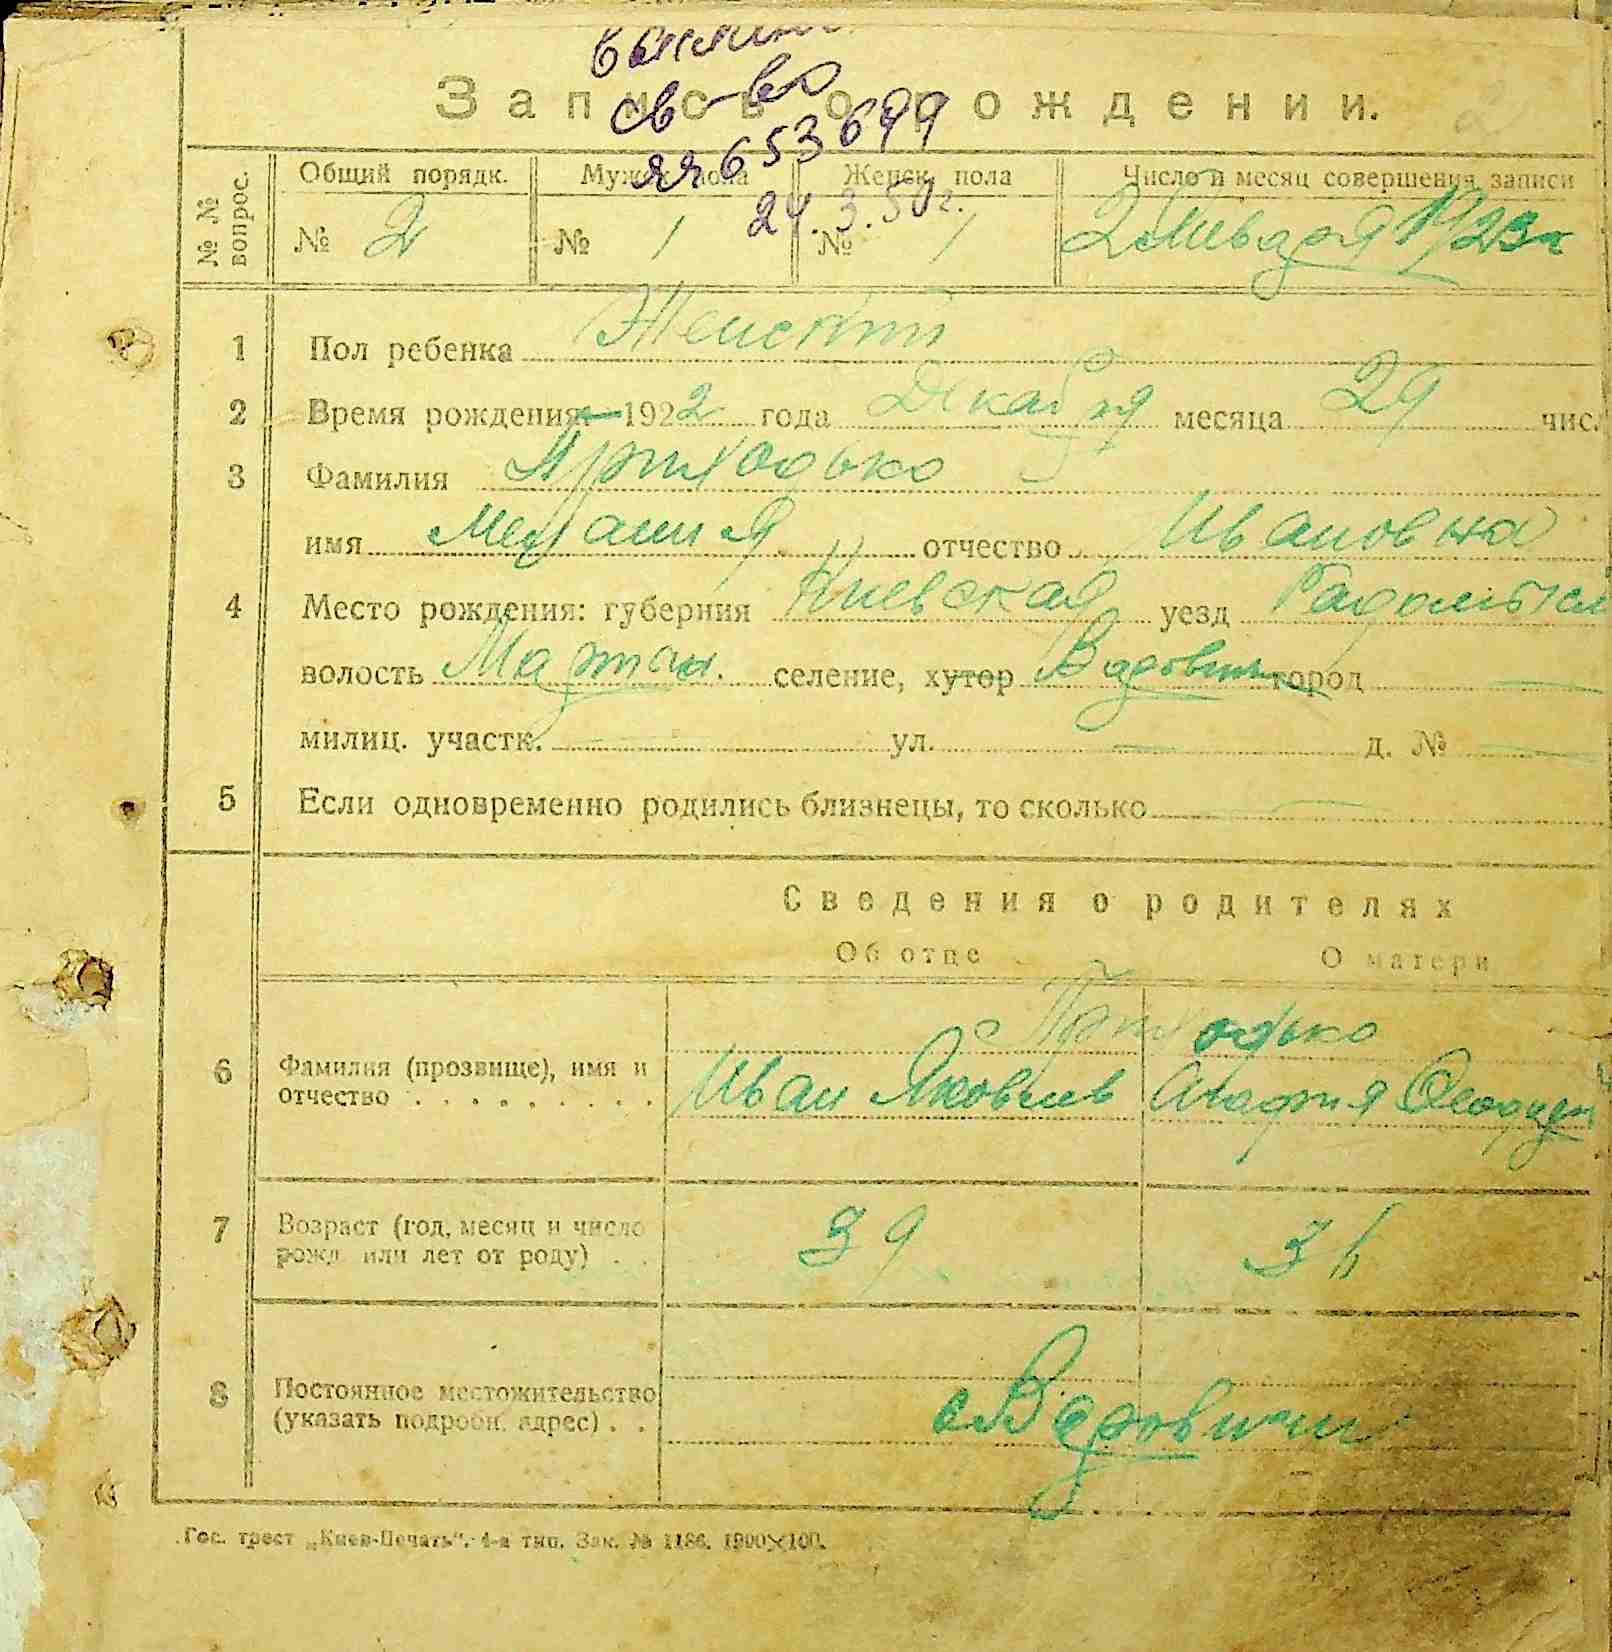 св-во
яя 653699
24.3.50г.
Запись о рождении.
№ № вопрос.
Общий порядк. Мужск. пола Женск. пола Число и месяц совершения записи
№ 2 № 1 № 1 2 Января 1923г
1 Пол ребенка Женский
2 Время рождения: 1922 года Декабря месяца 29 числ
3 Фамилия Приходько
имя Мелания отчество Ивановна
4 Место рождения: губерния Киевская уезд Радомысл
волость Мартын. селение, хутор город
милиц. участк. ул. д. №
5 Если одновременно родились близнецы, то сколько
Сведения о родителях
Об отце О матери
Приходько
6 Фамилия (прозвище), имя и отчество . . . . . . . . . Иван Яковлев Агафия
7 Возраст (год, месяц и число рожд. или лет от роду) . . 39 36
8 Постоянное местожительство (указать подробн. адрес) . . с Вдовичи
Гос. трест „Киев-Печать“. 4-я тип. Зак. № 1186. 1900×100.